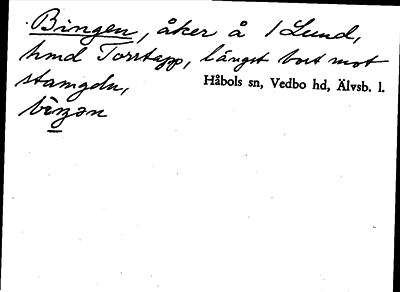 Bingen, åker å 1 Lund,
hmd Torstapp, längst bort mot
stamgdn,
Håbols sn, Vedbo hd, Älvsb. l.